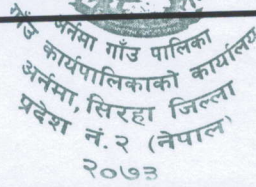 अर्नमा गाउँ पालिका
गाउँ कार्यपालिकाको कार्यालय
अर्नमा, सिरहा जिल्ला
प्रदेश नं. २ (नेपाल)
२०७३